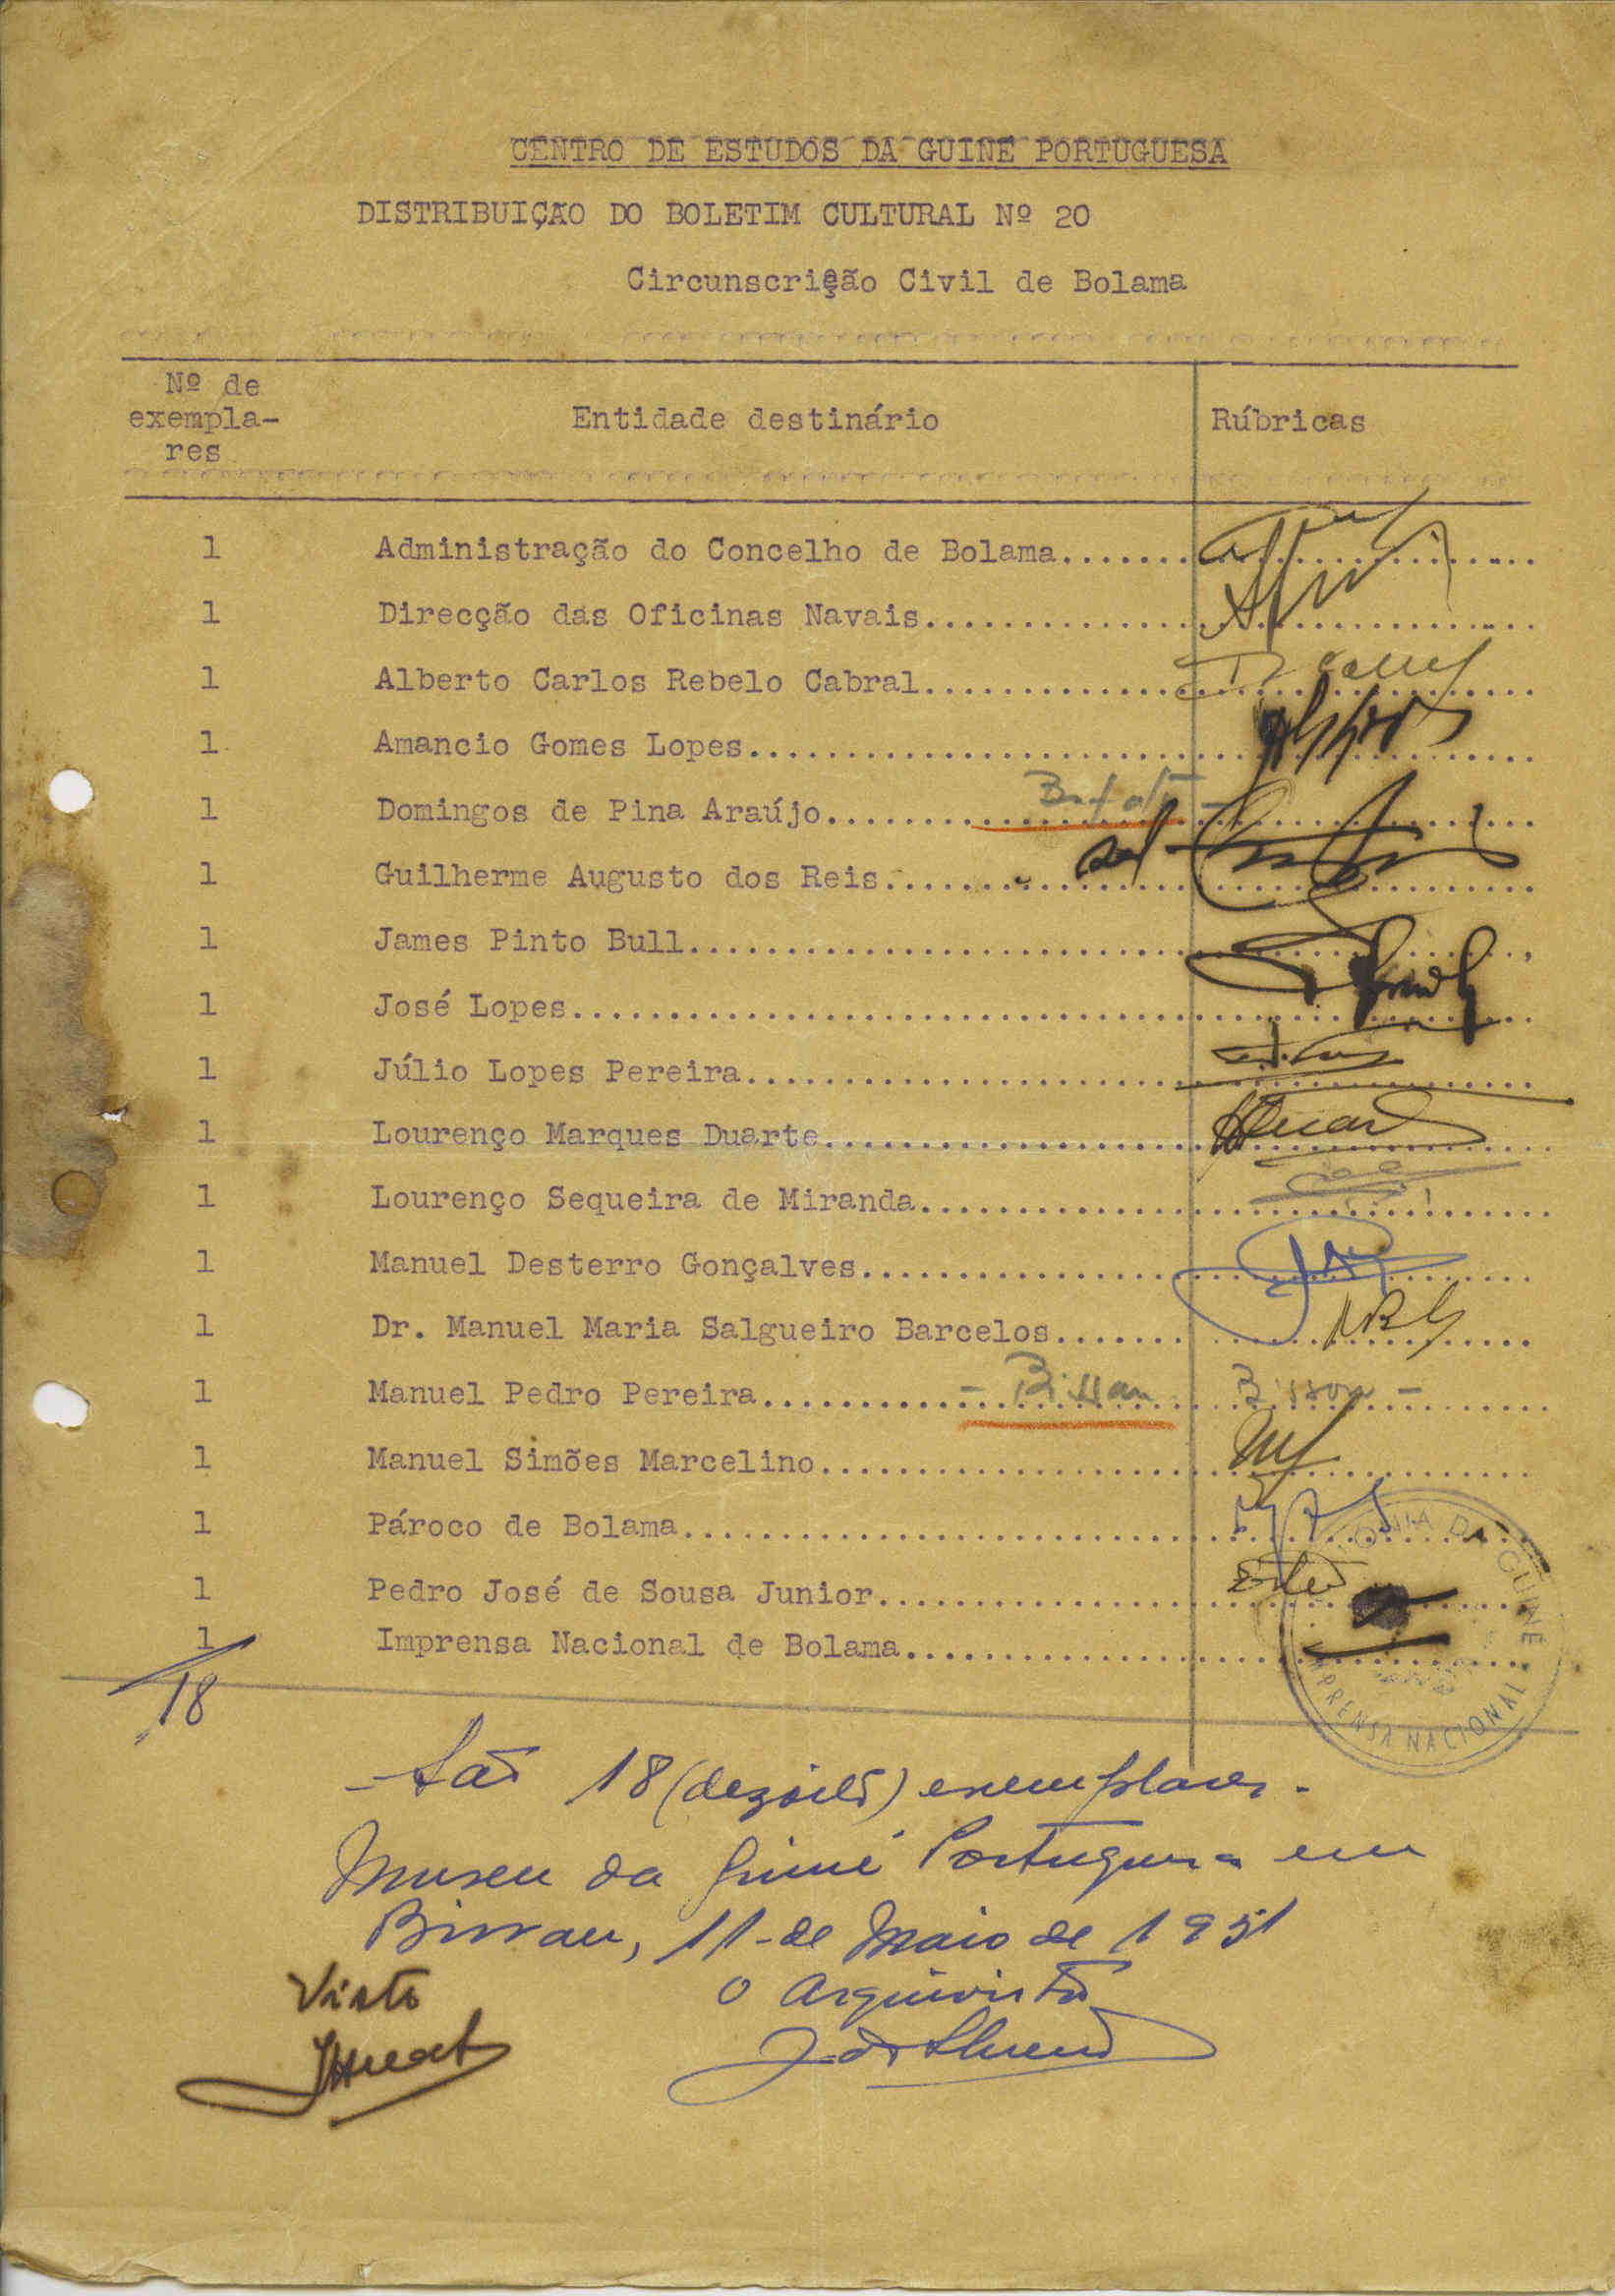 CENTRO DE ESTUDOS DA GUINE PORTUGUESA
DISTRIBUIÇÃO DO BOLETIM CULTURAL Nº 20
Circunscrição Civil de Bolama
Nº de
exempla-
res
Entidade destinário
Rúbricas
1 Administração do Concelho de Bolama
1 Direcção das Oficinas Navais
1 Alberto Carlos Rebelo Cabral
1 Amancio Gomes Lopes
1 Domingos de Pina Araújo
1 Guilherme Augusto dos Reis
1 James Pinto Bull
1 José Lopes
1 Júlio Lopes Pereira
1 Lourenço Marques Duarte
1 Lourenço Sequeira de Miranda
1 Manuel Desterro Gonçalves
1 Dr. Manuel Maria Salgueiro Barcelos
1 Manuel Pedro Pereira - Bissau Bissau -
1 Manuel Simões Marcelino
1 Pároco de Bolama
1 Pedro José de Sousa Junior
1 Imprensa Nacional de Bolama
COLONIA DA GUINÉ
IMPRENSA NACIONAL
18
- São 18 (dezoito) exemplares.
Museu da Guiné Portuguesa em
Bissau, 11 de Maio de 1951
Visto
O Arquivista